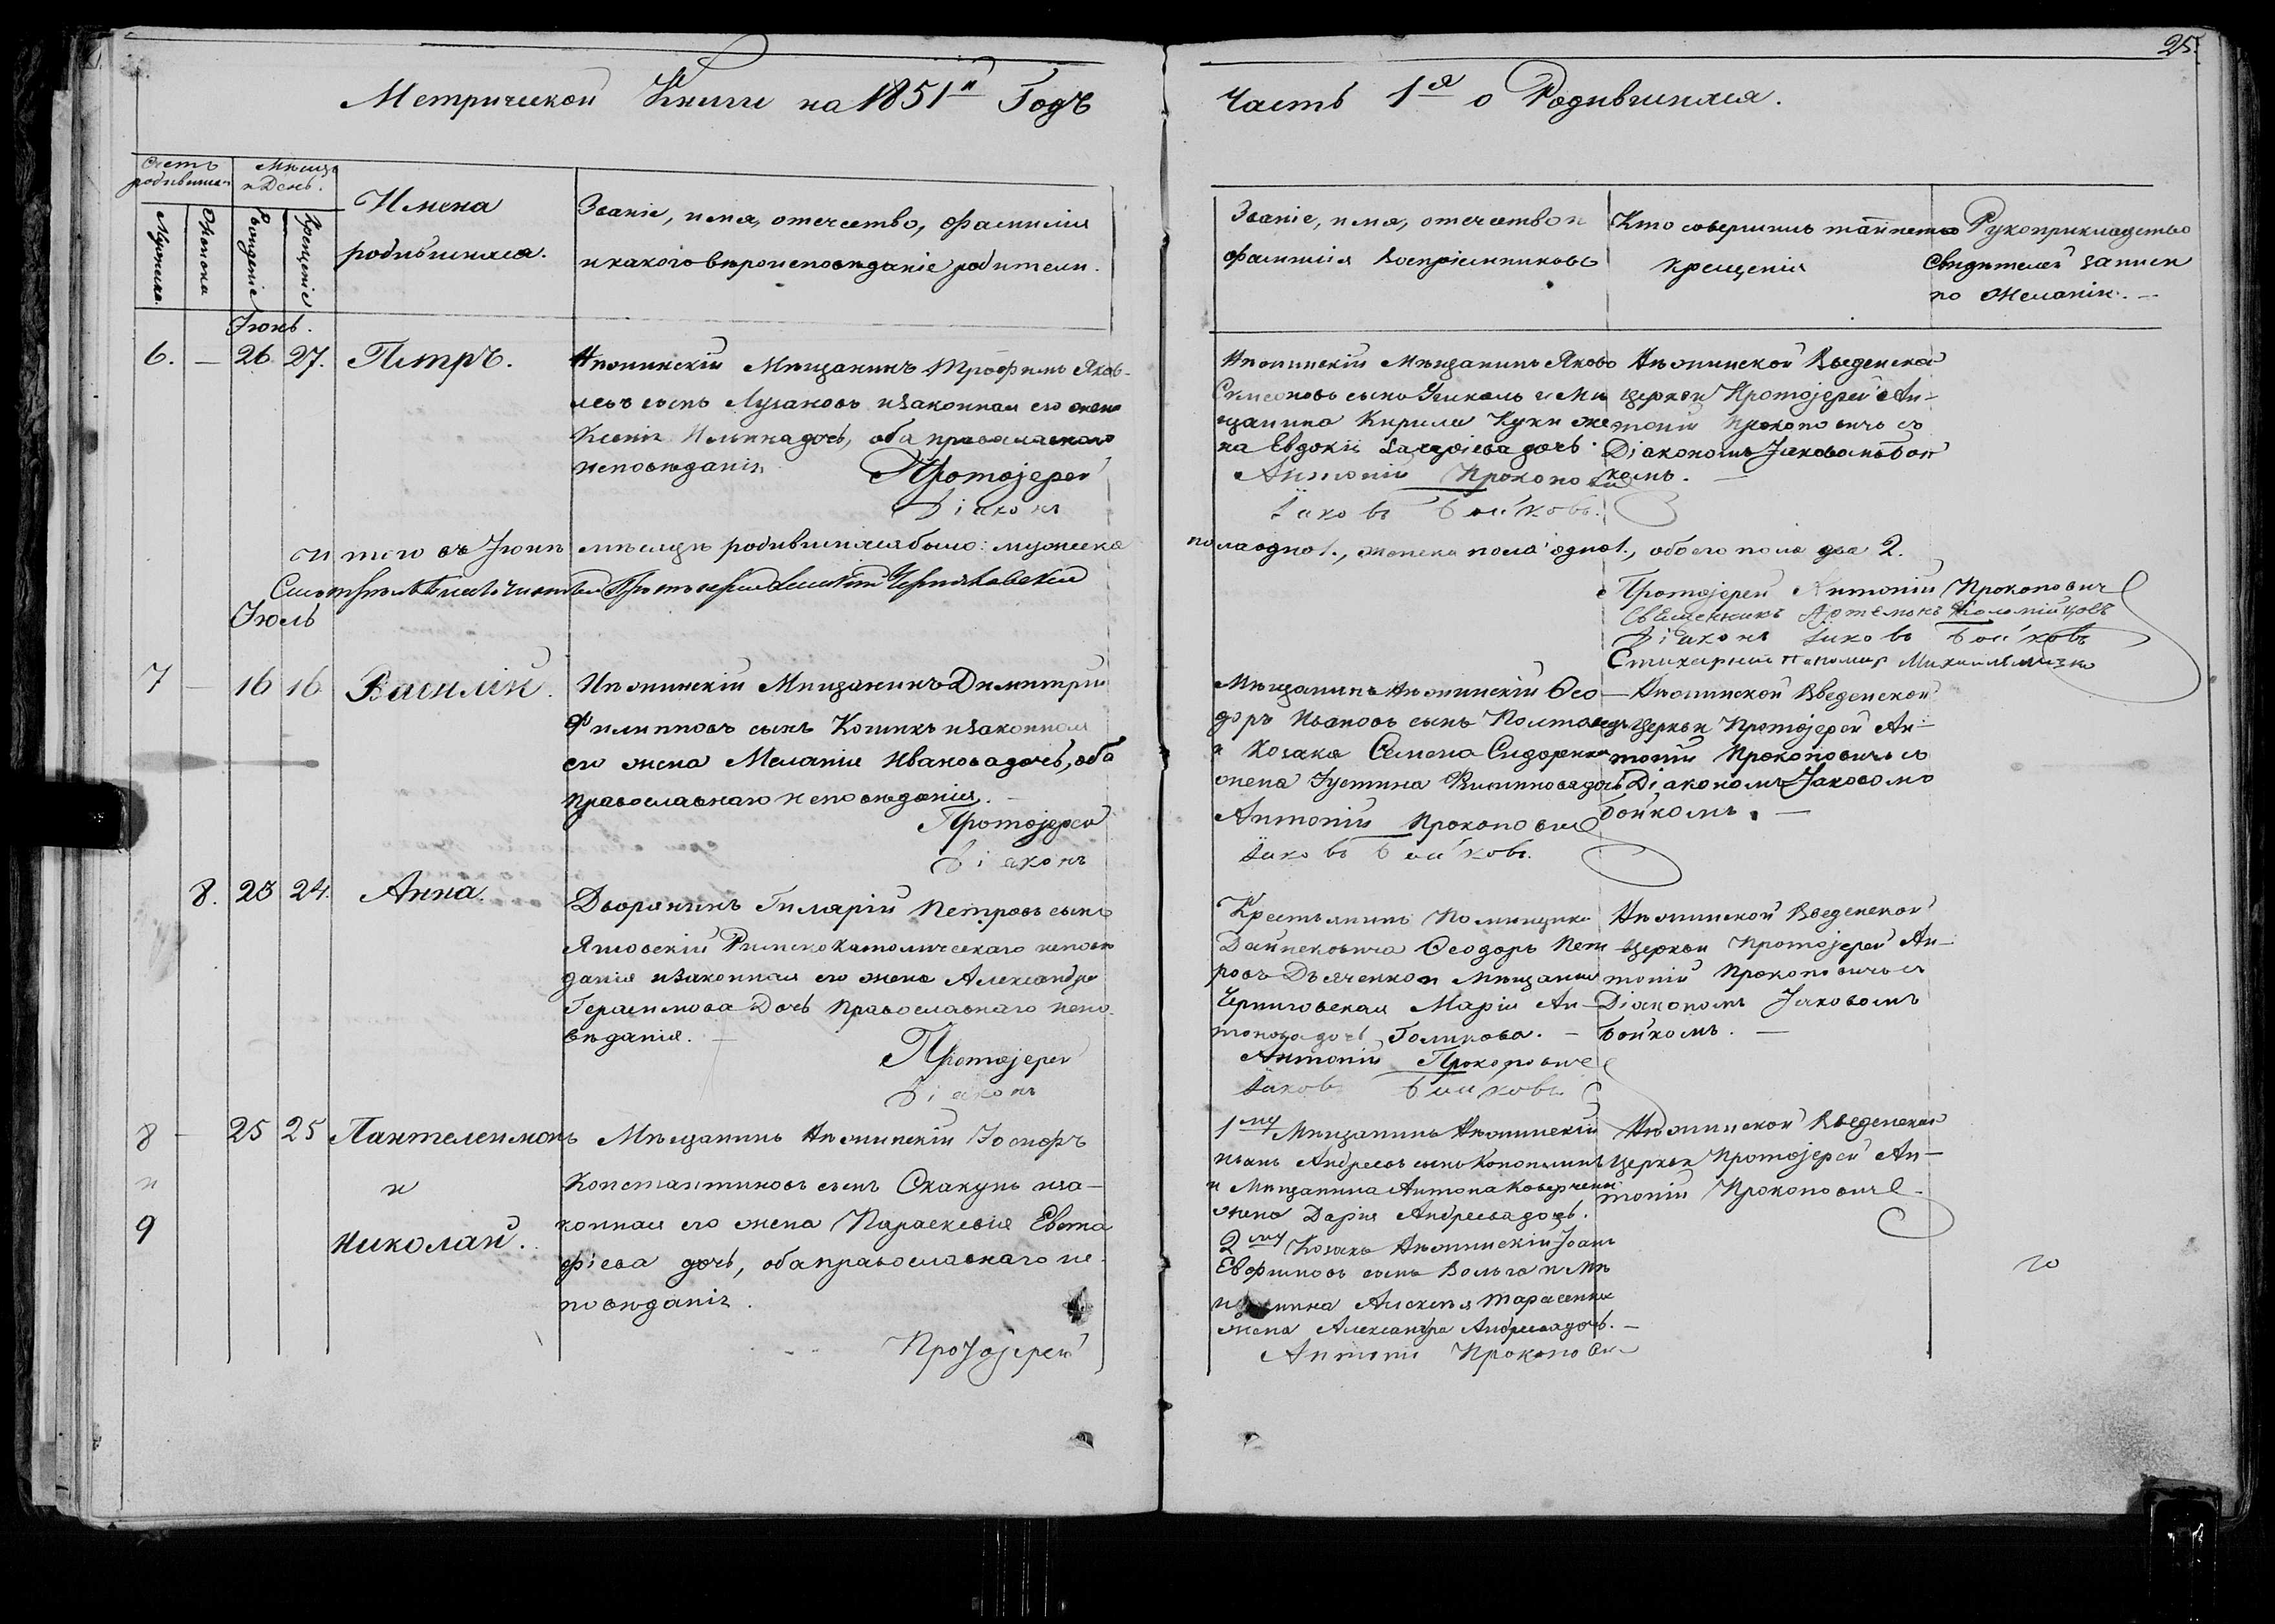 25.
Метрической Книги на 1851й Годъ
Часть 1я о Родившихся.
Счетъ родившихся
Мѣсяцъ и День.
Мужеска
Женска
Рожденіе
Крещеніе
Имена
родившихся.
Званіе, имя, отечество, фамилія
и какого вѣроисповѣданіе родители.
Званіе, имя, отечество и
фамилія Воспріемниковъ
Кто совершилъ таинство
крещенія
Рукоприкладство
Свидѣтелей записи
по Желанію. —
Іюнь.
6. — 26 27. Петръ.
Нѣжинскій Мѣщанинъ Трофимъ Яков-
левъ сынъ Лузановъ и законная его жена
Ксенія дочь, оба православнаго
исповѣданія.
Протоіерей
Діаконъ
Нѣжинскій Мѣщанинъ Яковъ
Симеоновъ сынъ и Мѣ
щанина Кирила Куки же
на Евдокія дочь.
Антоній Прокопович
Іаковъ Бойковъ.
Нѣжинской Введенской
церкви Протоіерей Ан-
тоній Прокоповичъ съ
Діакономъ Іаковомъ Бой
комъ. —
И того въ Іюнѣ мѣсяцѣ родившихся было: мужеска
пола одно 1., женска пола одно 1., обоего пола два 2.
Протоіерей Антоній Прокопович
Священникъ Коломійцовъ
Діаконъ Іаковъ Бойковъ
Стихарный пономар Михаил
Іюль
7 — 16 16 Василій.
Нѣжинскій Мѣщанинъ Димитрій
Филипповъ сынъ и законная
его жена Меланія Иванова дочь, оба
православнаго исповѣданія. —
Протоіерей
Діаконъ
Мѣщанинъ Нѣжинскій Ѳео—
доръ Ивановъ сынъ
и Козака Семена Сидоренка
жена Іустина Филиппова дочь
Антоній Прокопович
Іаковъ Бойковъ.
Нѣжинской Введенской
Церкви Протоіерей Ан—
тоній Прокоповичъ съ
Діакономъ Іаковомъ
Бойкомъ. —
8. 23 24. Анна.
Дворянинъ Гиларій Петровъ сынъ
Римскокатолическаго исповѣ
данія и законная его жена Александра
Герасимова Дочь Православнаго испо-
вѣданія. —
Протоіерей
Діаконъ
Крестьянинъ Помѣщика
Ѳеодоръ Пет
ровъ Дьяченко и Мѣщанка
Черниговская Марія Ан-
тонова дочь Голикова. —
Антоній Прокопович
Іаковъ Бойковъ
Нѣжинской Введенской
Церкви Протоіерей Ан—
тоній Прокоповичъ съ
Діакономъ Іаковомъ
Бойкомъ. —
8 — 25 25 Пантелеимонъ
и и
9 Николай.
Мѣщанинъ Нѣжинскій Іосифъ
Константиновъ сынъ Скакунъ и за—
конная его жена Параскевія Евста
фіева дочь, оба православнаго ис-
повѣданія.
Протоіерей
1му Мѣщанинъ Нѣжинскій
Иванъ Андреевъ сынъ
и Мѣщанина Антона
жена Дарія Андреева дочь.
2му Козакъ Нѣжинскій Іоанъ
Евфимовъ сынъ и Мѣ
щанина Алексѣя Тарасенка
жена Александра Андреева дочь. —
Антоній Прокопович
Нѣжинской Введенской
Церкви Протоіерей Ан—
тоній Прокопович